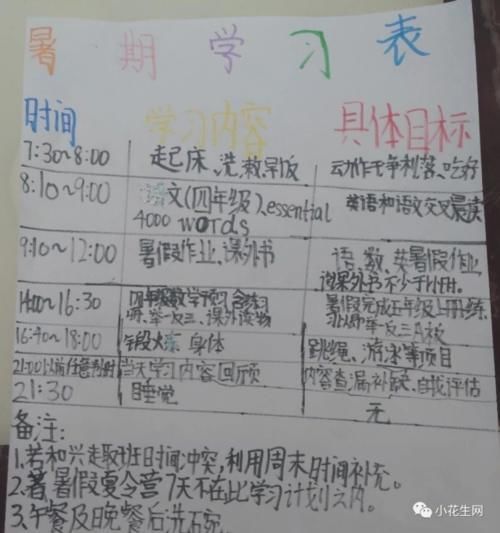 暑期学习表
时间 学习内容 具体目标
7:30~8:00 起床、洗漱早饭 动作干净利落、吃好
8:10~9:00 语文(四年级)、essential 英语和语文交叉晨读
4000 words
9:10~12:00 暑假作业、课外书 语、数、英暑假作业
读课外书不少于1小时.
14:00~16:30 四年级数学预习 含练习 暑假完成五年级上册练
册、举一反三、课外读物 习以即举一反三A板
16:40~18:00 身体 跳绳、游泳等项目
21:00以前任意时 当天学习内容回顾 内容查漏补缺、自我评估
21:30 睡觉 无
备注:
1.若和兴趣班日时间冲突,利用周末时间补充。
2.暑假夏令营7天不在此学习计划之内。
3.午餐及晚餐后洗碗
小花生网